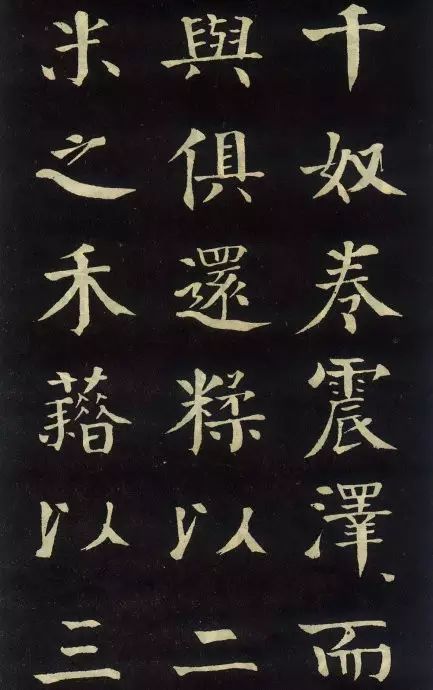 千奴卷震澤、而
與俱還糅以二
米之禾藉以三